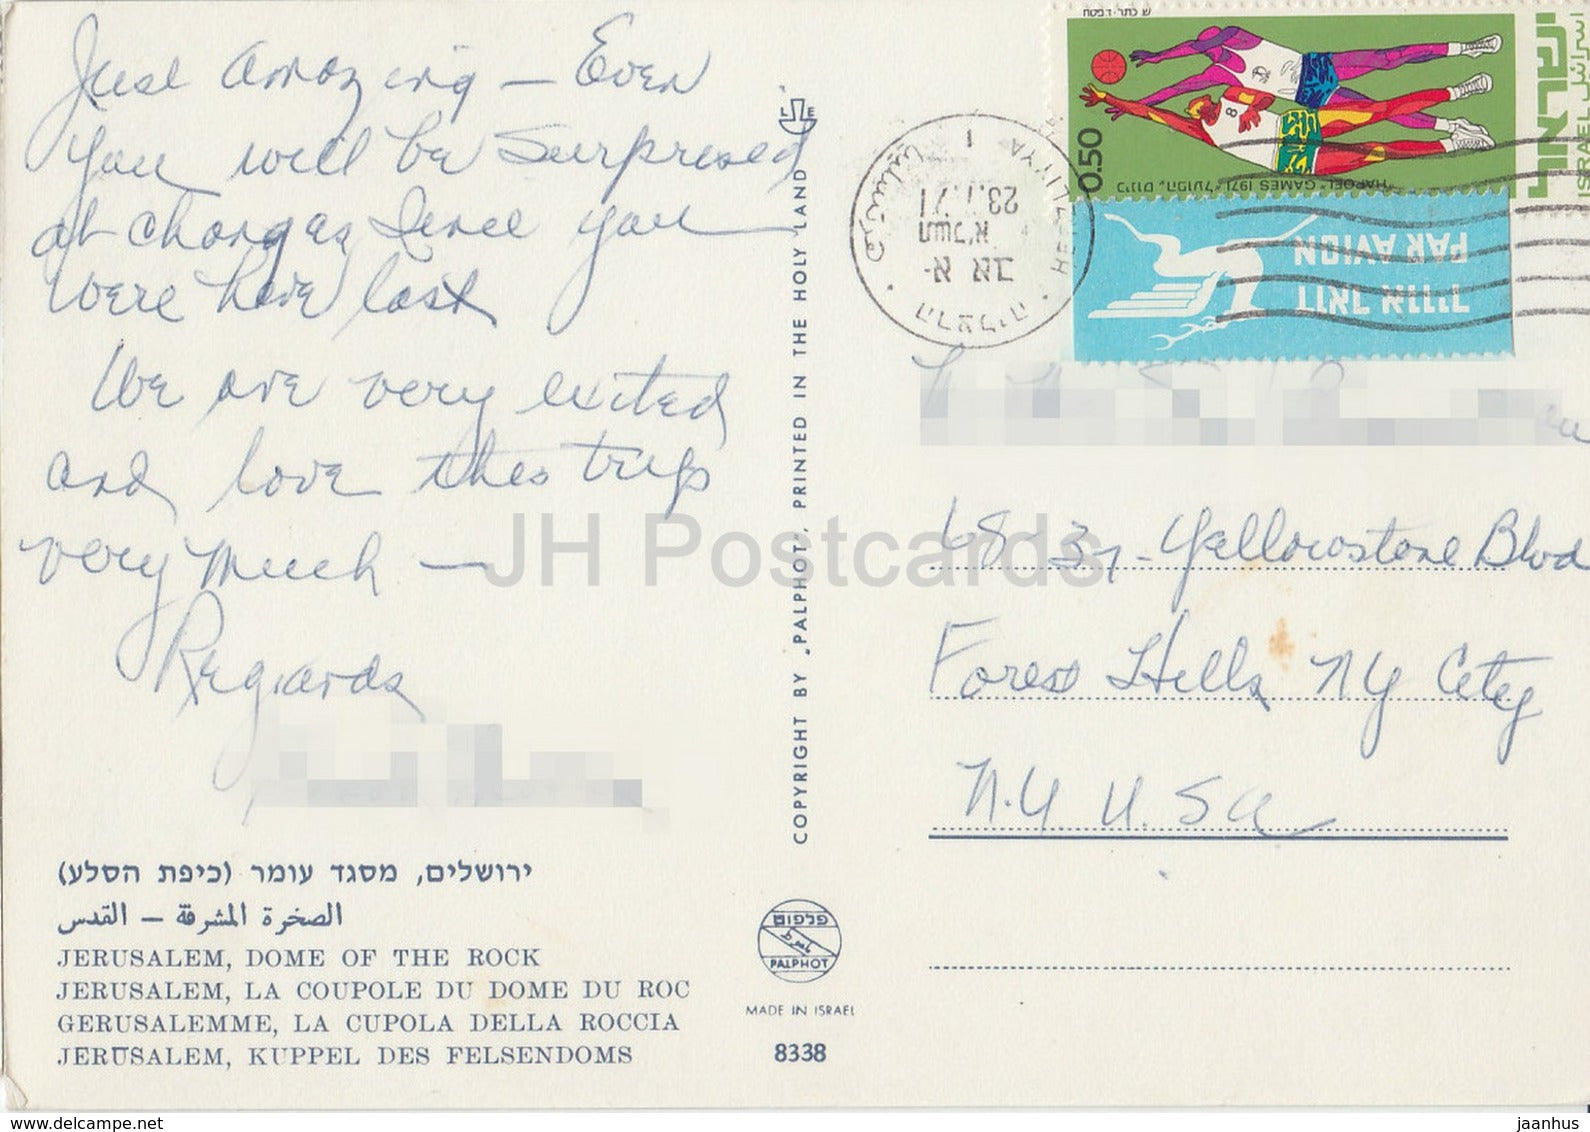 Just amazing — Even
you will be surprised
at changes since you
were here last
We are very exited
and love this trip
very much —
Regards
ירושלים, מסגד עומר (כיפת הסלע)
الصخرة المشرقة — القدس
JERUSALEM, DOME OF THE ROCK
JERUSALEM, LA COUPOLE DU DOME DU ROC
GERUSALEMME, LA CUPOLA DELLA ROCCIA
JERUSALEM, KUPPEL DES FELSENDOMS
COPYRIGHT BY „PALPHOT", PRINTED IN THE HOLY LAND
פלפוט
PALPHOT
MADE IN ISRAEL
8338
ש. כתר · ד. פסח
ישראל
ISRAEL اسرائيل
0.50
כינוס „הפועל" "HAPOEL" GAMES 1971
דואר אויר
PAR AVION
HERZELIYYA
הרצליה
א אב
תשל"א
23.7.71
1
68-37-Yellowstone Blvd
Forest Hills NY City
N.Y U.SA
JH Postcards
www.delcampe.net
jaanhus